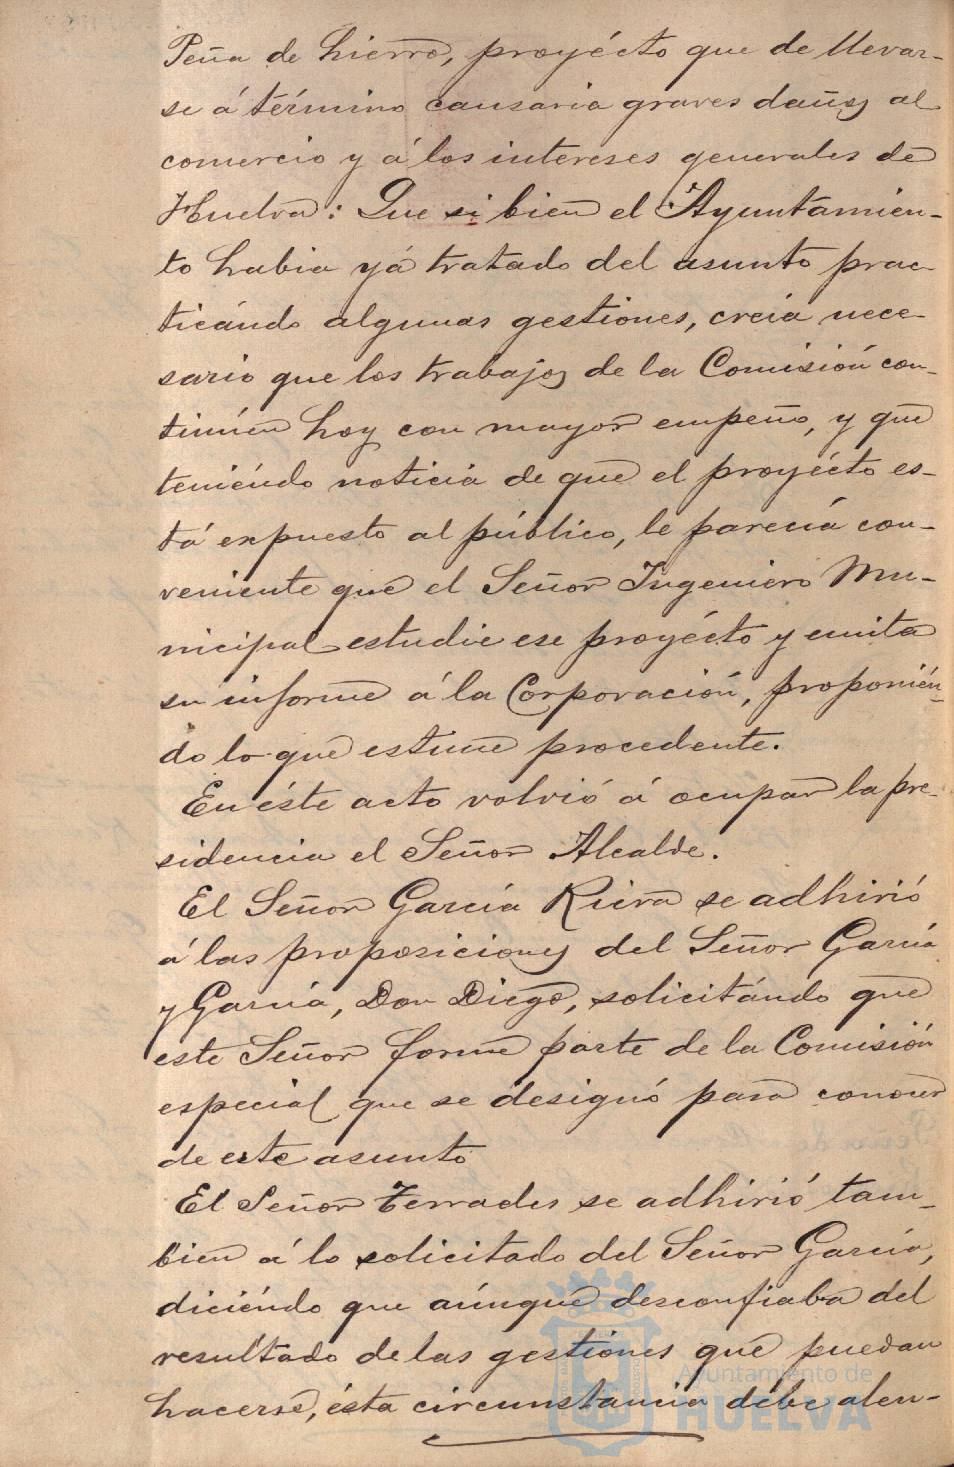 Peña de hierro, proyécto que de llevar-
se á término causaria graves daños al
comercio y á los intereses generales de
Huelva: Que si bien el Ayuntamien-
to habia yá tratado del asunto prac-
ticándo algunas gestiones, creia nece-
sario que los trabajos de la Comisión con-
tinúen hoy con mayor empeño, y que
teniéndo noticia de que el proyécto es-
tá expuesto al público, le parecia con-
veniente que el Señor Ingeniero Mu-
nicipal estudie ese proyécto y emita
su informe á la Corporación, proponién-
do lo que estime procedente.
En éste acto volvió á ocupar la pre-
sidencia el Señor Alcalde.
El Señor García Riera se adhirió
á las proposiciones del Señor García
y García, Don Diego, solicitándo que
este Señor forme parte de la Comisión
especial que se designó para conocer
de este asunto
El Señor Terrades se adhirió tam-
bien á lo solicitado del Señor García,
diciéndo que aúnque desconfiaba del
resultado de las gestiónes que puedan
hacerse, ésta circunstancia débe alen-
Ayuntamiento de
HUELVA